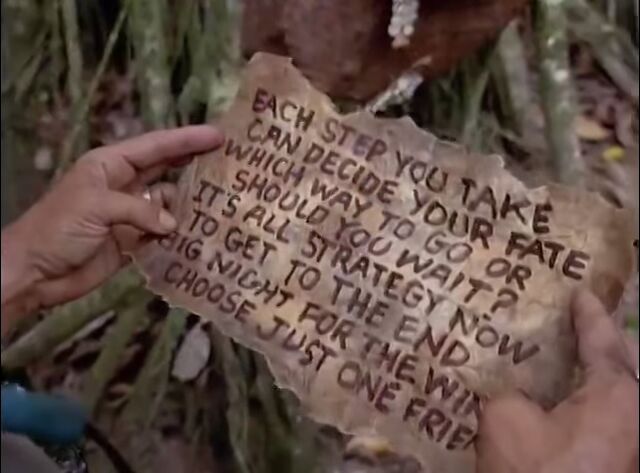 EACH STEP YOU TAKE
CAN DECIDE YOUR FATE
WHICH WAY TO GO OR
SHOULD YOU WAIT?
IT'S ALL STRATEGY NOW
TO GET TO THE END
BIG NIGHT FOR THE
CHOOSE JUST ONE